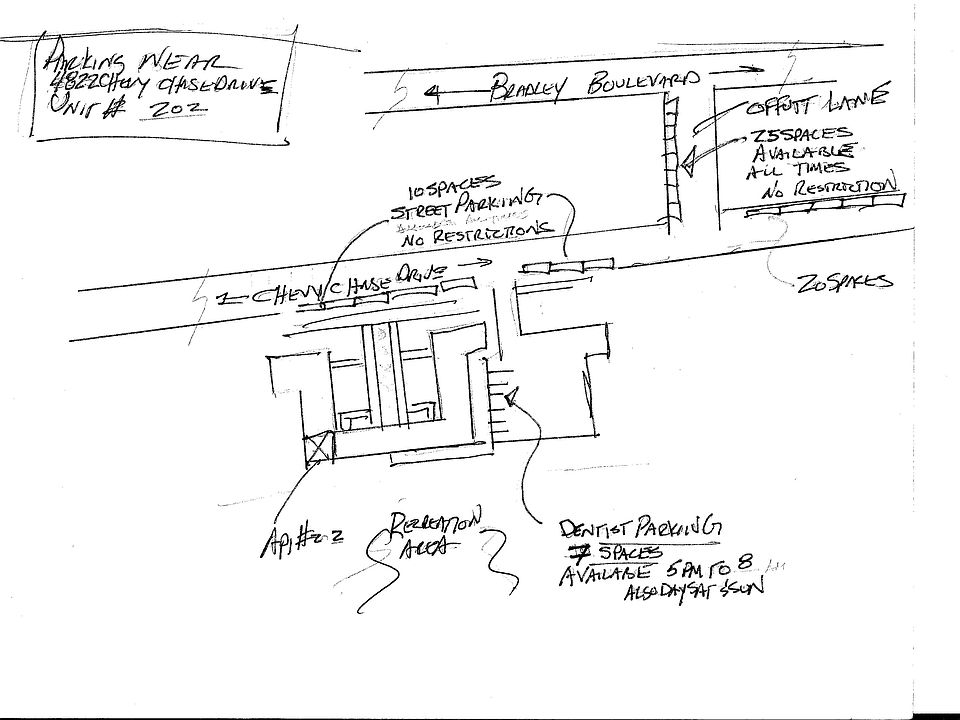 PARKING NEAR
4822 CHEVY CHASE DRIVE
UNIT # 202
BRADLEY BOULEVARD
OFFUTT LANE
25 SPACES
AVAILABLE
ALL TIMES
NO RESTRICTION
10 SPACES
STREET PARKING
NO RESTRICTIONS
CHEVY CHASE DRIVE
20 SPACES
APT #202
RECREATION
AREA
DENTIST PARKING
7 SPACES
AVAILABLE 5 PM TO 8 AM
ALSO DAY SAT & SUN